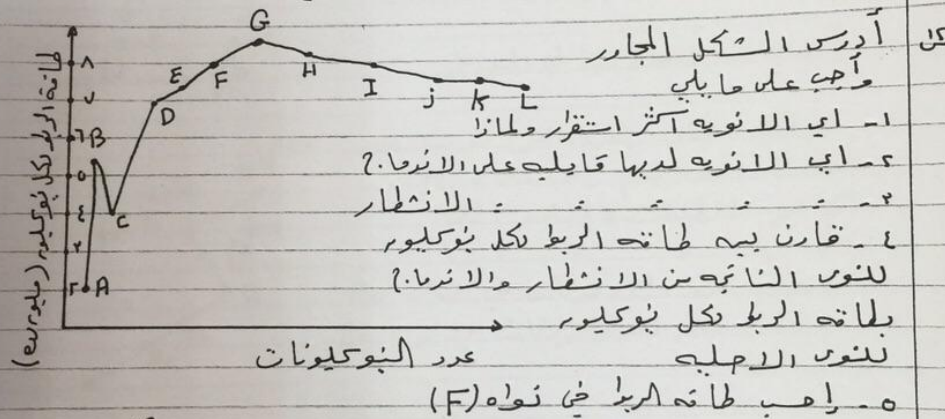 أدرس الشكل المجاور
وأجب على ما يلي
١- اي الانويه أكثر استقرار ولماذا
٢- اي الانويه لديها قابليه على الاندماج؟
٣- = = = = الانشطار
٤- قارن بين طاقه الربط لكل نيوكليون
للنوى الناتجه من الانشطار والاندماج؟
بطاقه الربط لكل نيوكليون
للنوى الاصليه
٥- احسب طاقه الربط في نواه (F)
طاقة الربط لكل نيوكليون (مليون ev)
٨
٧
٦
٥
٤
٣
٢
A
B
C
D
E
F
G
H
I
J
K
L
عدد النيوكليونات